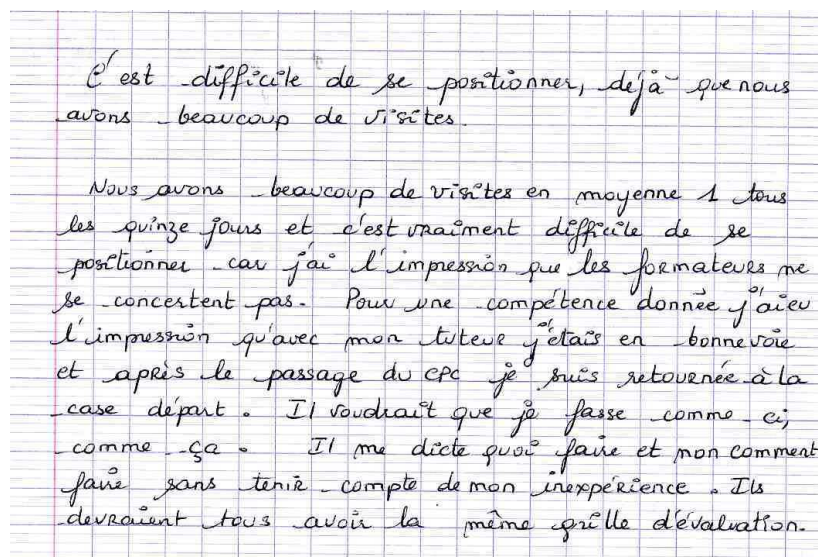 C'est difficile de se positionner, déjà que nous
avons beaucoup de visites.
Nous avons beaucoup de visites en moyenne 1 tous
les quinze jours et c'est vraiment difficile de se
positionner car j'ai l'impression que les formateurs ne
se concertent pas. Pour une compétence donnée j'ai eu
l'impression qu'avec mon tuteur j'étais en bonne voie
et après le passage du CPC je suis retournée à la
case départ. Il voudrait que je fasse comme ci,
comme ça. Il me dicte quoi faire et non comment
faire sans tenir compte de mon inexpérience. Ils
devraient tous avoir la même grille d'évaluation.